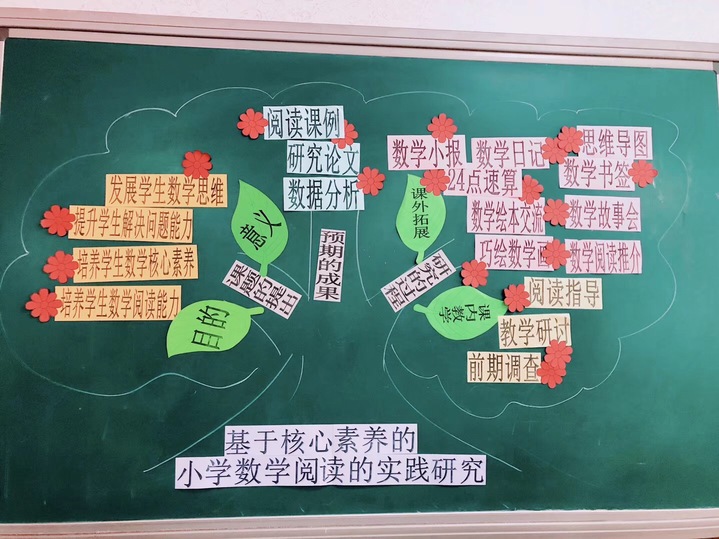 阅读课例
研究论文
数据分析
预期的成果
发展学生数学思维
提升学生解决问题能力
培养学生数学核心素养
培养学生数学阅读能力
意义
目的
课题的提出
数学小报
数学日记
思维导图
24点速算
数学书签
数学绘本交流
数学故事会
巧绘数学画
数学阅读推介
课外拓展
研究的过程
课内数学
阅读指导
教学研讨
前期调查
基于核心素养的
小学数学阅读的实践研究